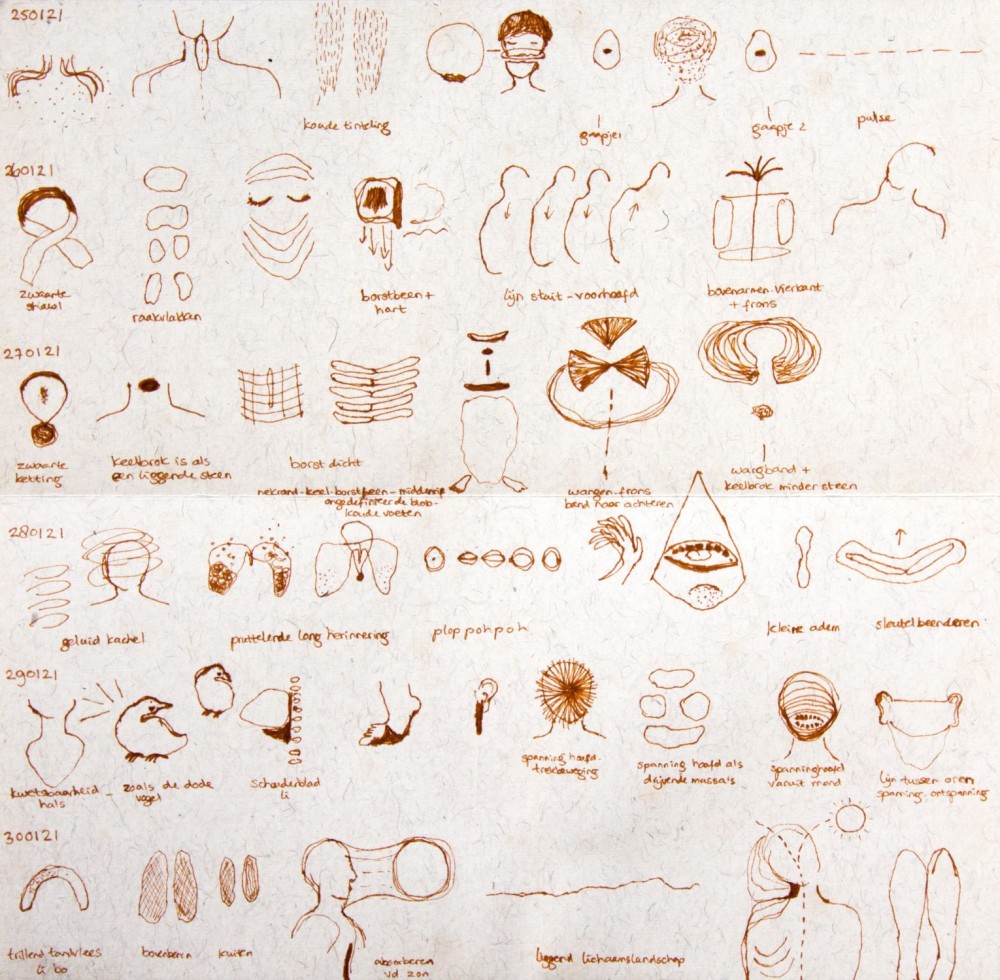 250121
koude tinteling
gaapje1
gaapje 2
pulse
260121
zwaarte
sjaal
raakvlakken
borstbeen +
hart
lijn stuit - voorhoofd
bovenarmen - vierkant
+ frons
270121
zwaarte
ketting
keelbrok is als
een liggende steen
borst dicht
nekrand - keel - borstbeen - middenrif
ongedefinieerde blob -
koude voeten
wangen - frons
band naar achteren
wangband +
keelbrok minder steen
280121
geluid kachel
pruttelende long herinnering
plop poh poh
kleine adem
sleutelbeenderen
290121
kwetsbaarheid - zoals de dode
hals
vogel
Schouderblad
li
spanning hoofd -
trekbeweging
spanning hoofd als
drijvende massa's
spanninghoofd
vanuit mond
lijn tussen oren
spanning - ontspanning
300121
trillend tandvlees
li bo
bovenbenen
kuiten
absorberen
vd zon
liggend lichaamslandschap